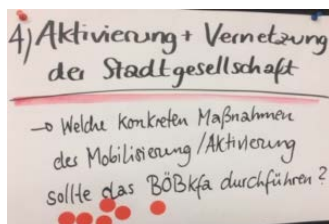 4) Aktivierung + Vernetzung
der Stadtgesellschaft
→ Welche konkreten Maßnahmen
der Mobilisierung/Aktivierung
sollte das BÖBkfa durchführen?